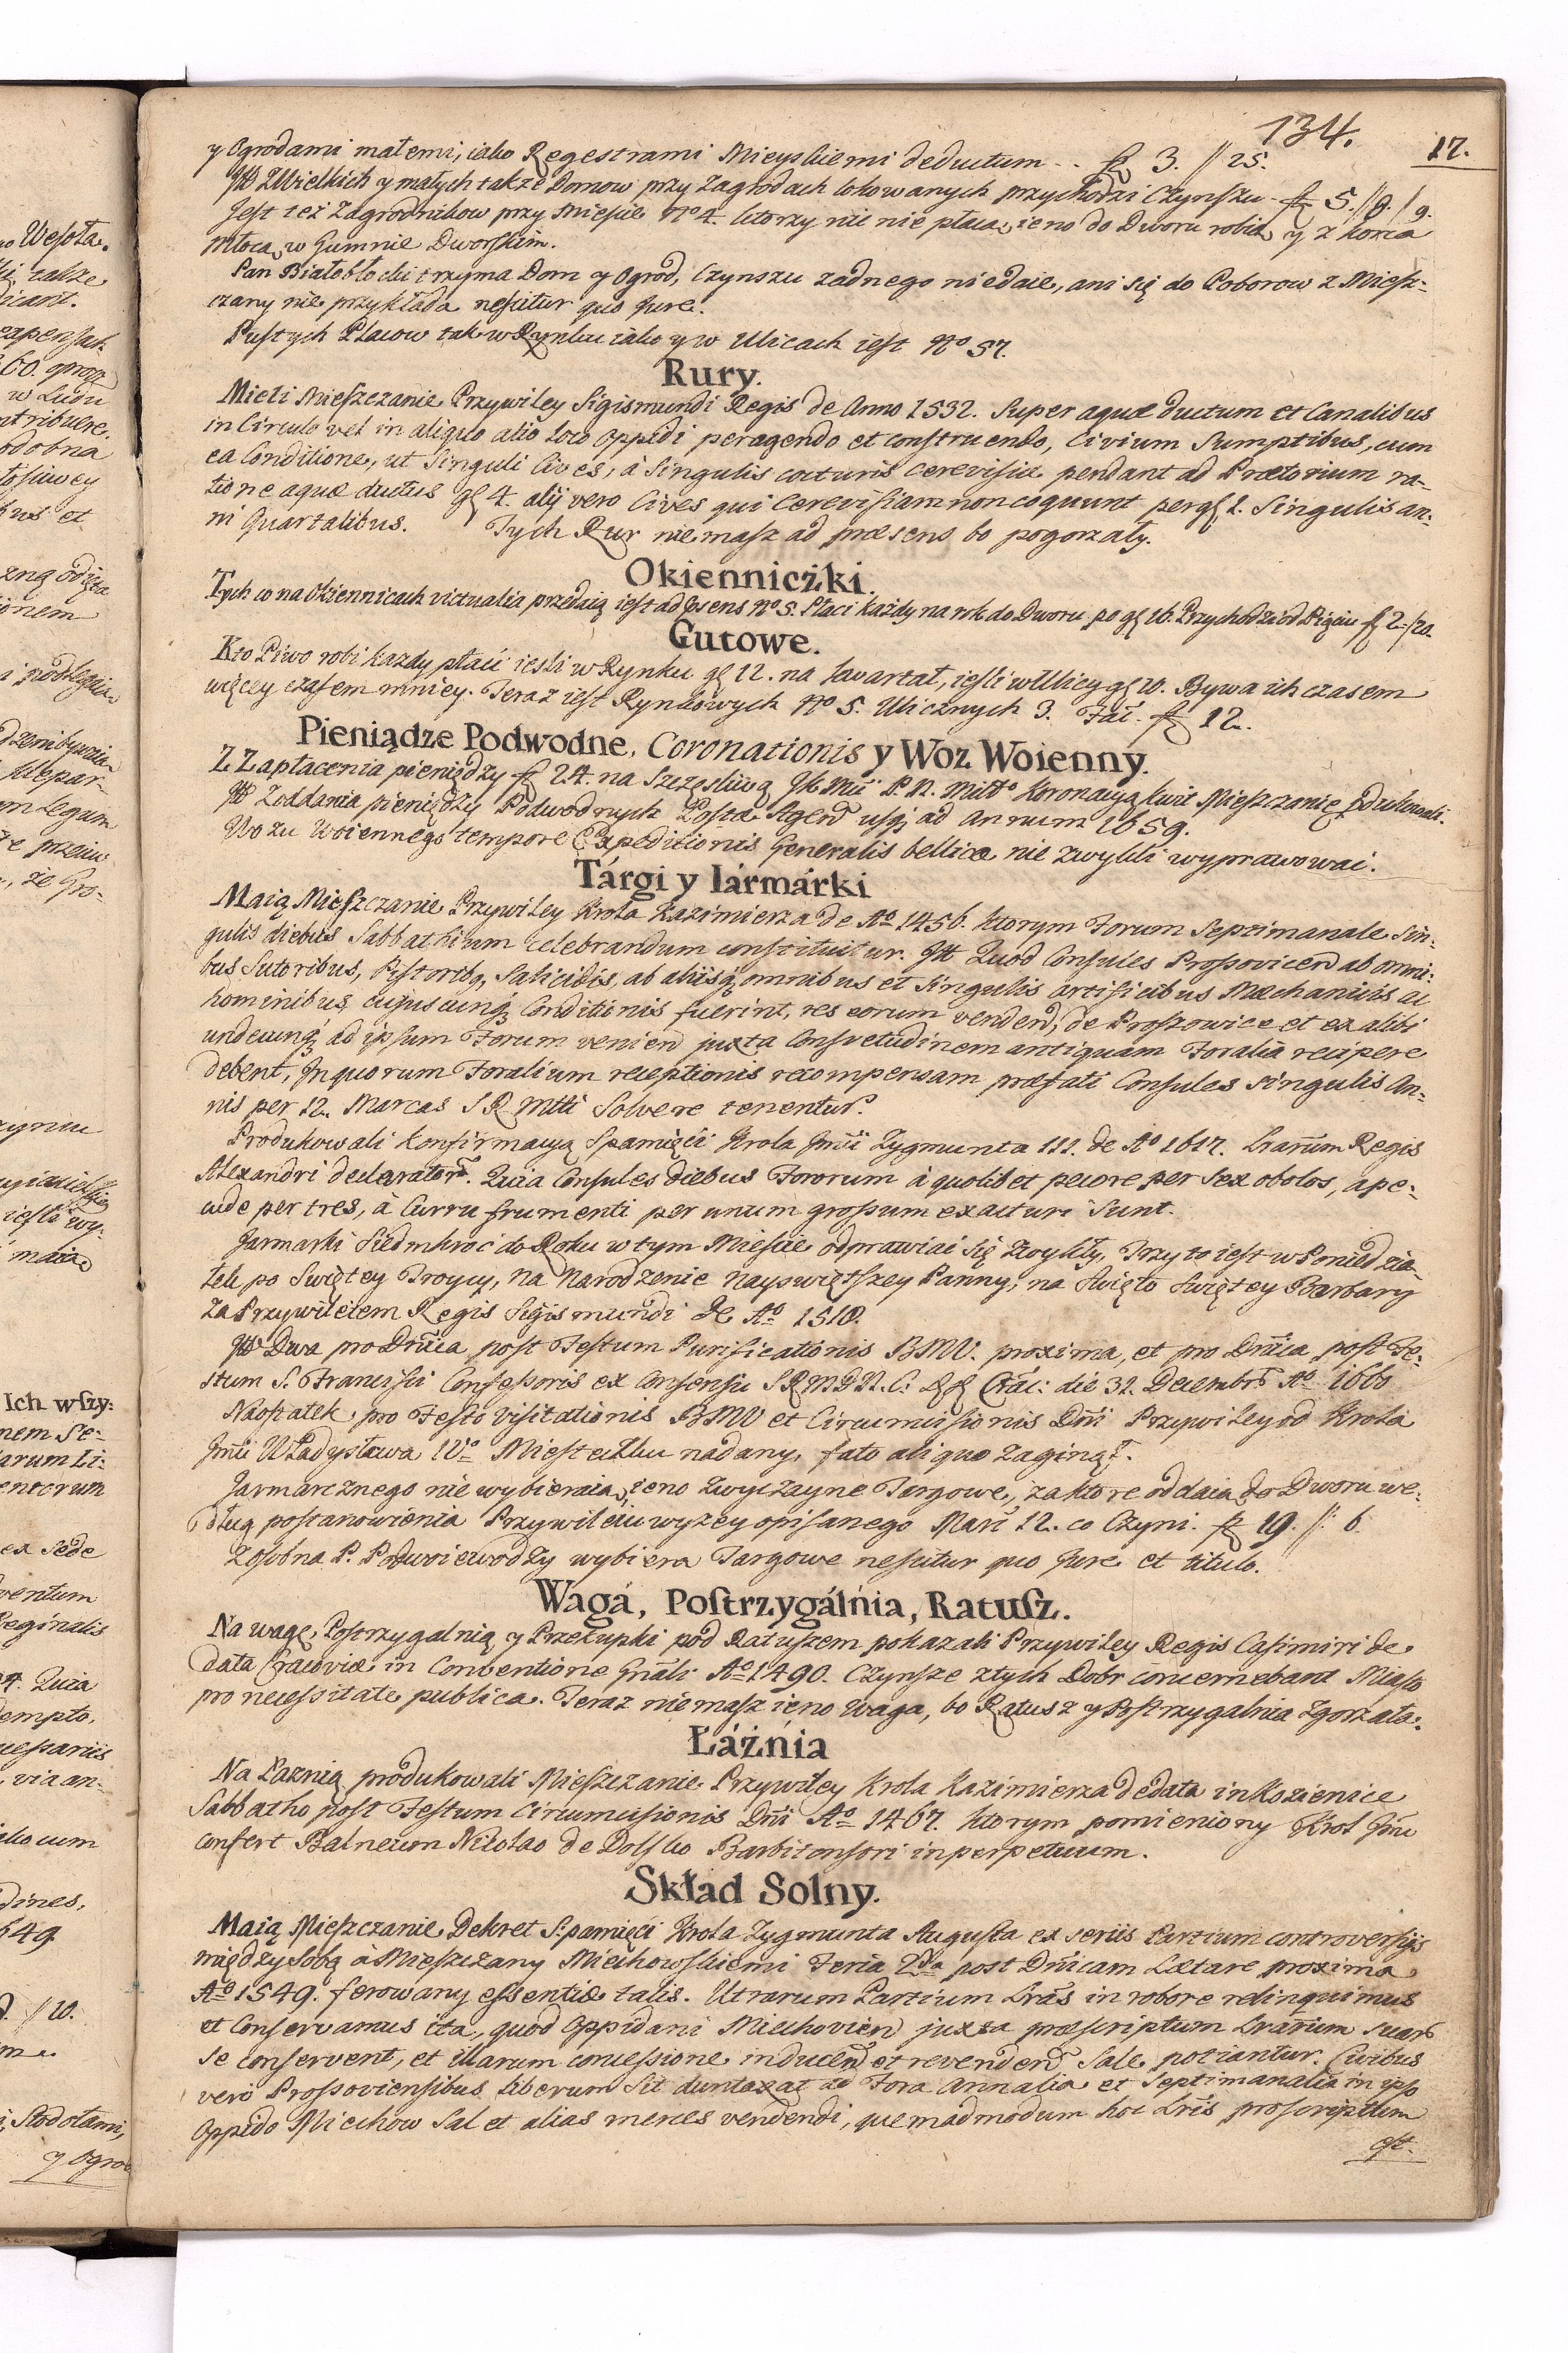 134.
17.
y Ogrodami małemi, iako Regestrami Mieyskiemi deductum .. f 3. // 25.
Jtt Z Wielkich y małych także Domow przy Zagrodach lokowanych przychodzi Czynszu f 5. // 8. / 9.
Jest też Zagrodnikow przy Mieście No 4. ktorzy nic nie płacą, ieno do Dworu robią y z korca
młocą w Gumnie Dworskim.
Pan Białobłocki trzyma Dom y Ogrod, Czynszu zadnego niedaie, ani się do Poborow z Miesz-
czany nie przykłada nescitur quo Jure.
Pustych Placow tak w Rynku iako y w Ulicach iest No 57.
Rury.
Mieli Mieszczanie Przywiley Sigismundi Regis de Anno 1532. Super aquæ ductum et Canalibus
in Circulo vel in aliquo alio loco Oppidi peragendo et construendo, Civium Sumptibus, cum
ea Conditione, ut Singuli Cives, à Singulis cocturis Cerevisiæ pendant ad Prætorium ra-
tione aquæ ductus gł 4. alij vero Cives qui Cerevisiam non coquunt per gł 1. Singulis an-
ni Quartalibus. Tych Rur nie masz ad præsens bo pogorzały.
Okienniczki.
Tych co na Okiennicach victualia przedaią iest ad Psens No 5. Płaci każdy na rok do Dworu po gł 16. Przychodzi od Pięciu f 2 // 20.
Gutowe.
Kto Piwo robi każdy płaci iesli w Rynku gł 12. na kwartał, iesli w Ulicy gł 10. Bywa ich czasem
więcey czasem mniey. Teraz iest Rynkowych No 5. Ulicznych 3. Fać. f 12.
Pieniądze Podwodne, Coronationis y Woz Woienny.
Z Zapłacenia pieniędzy f 24. na Szczęśliwą JK Mći P. N. Miłłº Koronacyą kwit Mieszczanie produkowali.
Jtt Z oddania pieniędzy Podwodnych Postæ Agen usq; ad Annum 1659.
Wozu Woiennego tempore Expeditionis Generalis bellicæ nie zwykli wyprawowac.
Tárgi y Iármárki
Maią Mieszczanie Przywiley Krola Kazimierza de Ao 1456. ktorym Forum Septimanale Sin-
gulis diebus Sabbathium celebrandum constituitur. Jtt Quod Consules Prossovicen ab omni-
bus Sutoribus, Pistoribq, Salicidis, ab aliisq; omnibus et Singulis artificibus Mæchanicis ac
hominibus cujuscunq; Conditionis fuerint, res eorum venden, de Proszowice et ex alibi
undecunq; ad ipsum Forum venien juxta Consvetudinem antiquam Foralia recipere
debent, Jn quorum Foralium receptionis recompensam præfati Consules singulis An-
nis per 12. Marcas S R Mtti Solvere tenentur.
Produkowali Konfirmacyą S pamięći Krola Jmći Zygmunta III. de Ao 1617. Lrarum Regis
Alexandri declarator. Quia Consules diebus Fororum à quolibet pecore per Sex obolos, a pe-
cude per tres, à Curru frumenti per unum grossum exacturi Sunt.
Jarmarki Siedmkroć do Roku w tym Mieście odprawiać się zwykły, Trzy to iest w Poniedzia-
łek po Swiętey Troycy, na Narodzenie Nayświętszey Panny, na Swięto Swiętey Barbary
za Przywileiem Regis Sigismundi de Ao 1510.
Jtt Dwa pro Dnica post Festum Purificationis BMV. proxima, et pro Dnica post Fe-
stum S. Francisci Confessoris ex Consensu SRMDN. C: Cráć: die 31. Decembr Ao 1660
Naostatek, pro Festo Visitationis BMV et Circumcisionis Dni Przywiley od Krola
Jmći Władysława IVo Miasteczku nadany, fato aliquo zaginął.
Jarmarcznego nie wybieraią, ieno zwyczayne Targowe, za ktore oddaią do Dworu we-
dług postanowienia Przywileiu wyzey opisanego Marć 12. co Czyni. f 19. // 6.
zosobna P. Podwoiewodzy wybiera Targowe nescitur quo Jure et titulo.
Wagá, Postrzygálńia, Ratusz.
Na wagę, Postrzygalnią y Przekupki pod Ratuszem pokazali Przywiley Regis Casimiri de
data Cracoviæ in Conventione Gnáli Ao 1490. Czynsze z tych Dobr concernebant Miasto
pro necessitate publica. Teraz nie masz ieno Waga, bo Ratusz y Postrzygalnia zgorzała.
Łáźńia
Na Łaznią produkowali Mieszczanie Przywiley Krola Kazimierza de data in Kozienice
Sabbatho post Festum Circumcisionis Dni Ao 1467. ktorym pomieniony Krol Jmć
confert Balneum Nicolao de Dolsko Barbitonsori in perpetuum.
Skład Solny.
Maią Mieszczanie Dekret S. pamięći Krola Zygmunta Augusta ex seriis Partium controversijs
między Sobą à Mieszczany Miechowskiemi Feria 2da post Dnicam Lætare proxima
Ao 1549. ferowany essentiæ talis. Utrarum Partium Lrás in robore relinquimus
et Conservamus ita, quod Oppidani Miechovien juxta præscriptum Lrarum suar
se conservent, et illarum concessione inducen et revenden Sale potiantur. Civibus
verò Prossoviensibus liberum Sit duntaxat ad Fora Annalia et Septimanalia in ipso
Oppido Miechow Sal et alias merces vendendi, quemadmodum hoc Lris proscriptum
est.